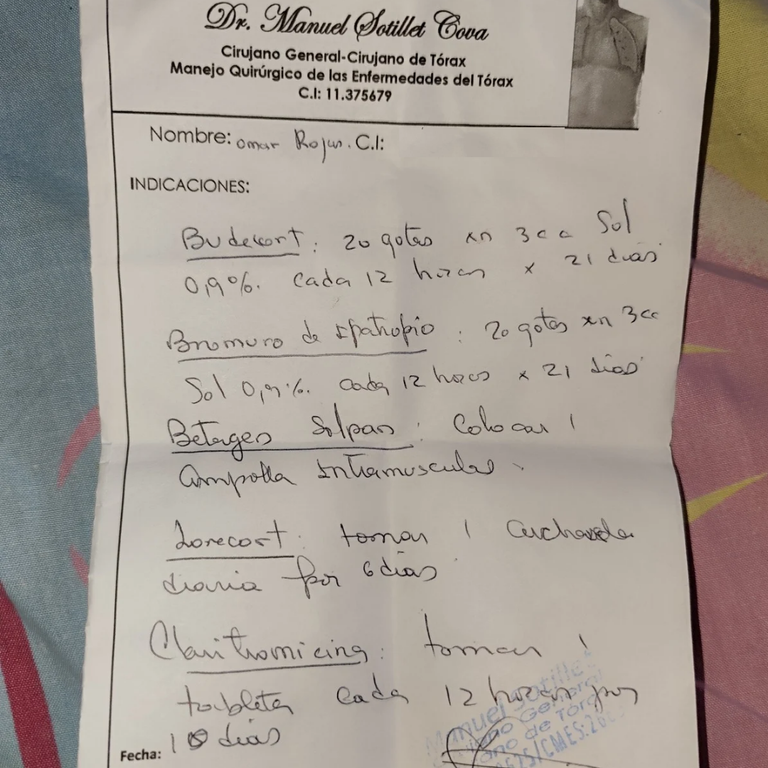 Dr. Manuel Sotillet Cova
Cirujano General-Cirujano de Tórax
Manejo Quirúrgico de las Enfermedades del Tórax
C.I: 11.375679
Nombre: Omar Rojas. C.I:
INDICACIONES:
Budecort: 20 gotas en 3cc Sol
0,9%. cada 12 horas x 21 días
Bromuro de Ipatropio: 20 gotas en 3cc
Sol 0,9%. cada 12 horas x 21 días
Betages Solpan: Colocar 1
ampolla intramuscular
Lorecort: tomar 1 cucharada
diaria por 6 días
Claritromicina: tomar 1
tableta cada 12 horas por
10 días
Fecha:
Manuel Sotillet
General
de Tórax